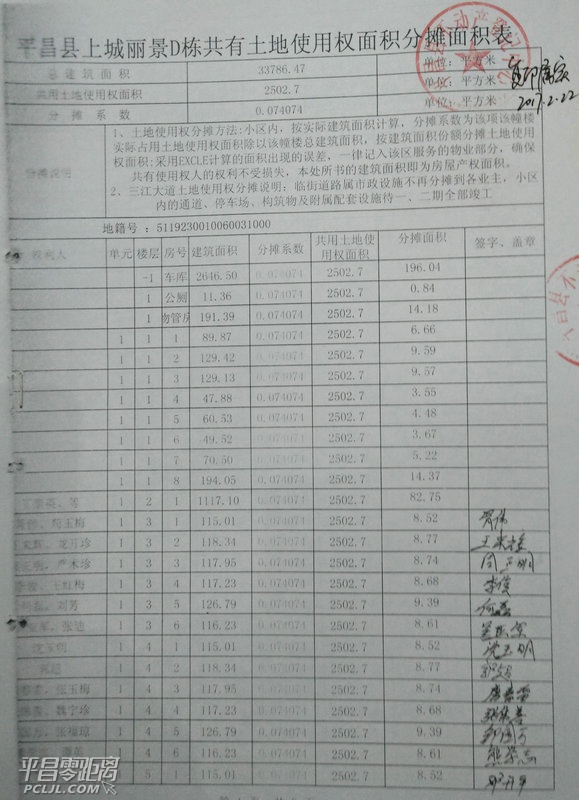 平昌县上城丽景D栋共有土地使用权面积分摊面积表
总建筑面积 33786.47 单位：平方米
共用土地使用权面积 2502.7 单位：平方米
分摊系数 0.074074 单位：平方米
2017.2.22
分摊说明
1、土地使用权分摊方法:小区内，按实际建筑面积计算，分摊系数为该项该幢楼
实际占用土地使用权面积除以该幢楼总建筑面积，按建筑面积份额分摊土地使用
权面积;采用EXCLE计算的面积出现的误差，一律记入该区服务的物业部分，确保
共有使用权人的权利不受损失，本处所书的建筑面积即为房屋产权面积。
2、三江大道土地使用权分摊说明：临街道路属市政设施不再分摊到各业主，小区
内的通道、停车场、构筑物及附属配套设施待一、二期全部竣工
地籍号：5119230010060031000
权利人 单元 楼层 房号 建筑面积 分摊系数 共用土地使用权面积 分摊面积 签字、盖章
-1 车库 2646.50 0.074074 2502.7 196.04
1 公厕 11.36 0.074074 2502.7 0.84
1 物管房 191.39 0.074074 2502.7 14.18
1 1 1 89.87 0.074074 2502.7 6.66
1 1 2 129.42 0.074074 2502.7 9.59
1 1 3 129.13 0.074074 2502.7 9.57
1 1 4 47.88 0.074074 2502.7 3.55
1 1 5 60.53 0.074074 2502.7 4.48
1 1 6 49.52 0.074074 2502.7 3.67
1 1 7 70.50 0.074074 2502.7 5.22
1 1 8 194.05 0.074074 2502.7 14.37
等 1 2 1 1117.10 0.074074 2502.7 82.75
玉梅 1 3 1 115.01 0.074074 2502.7 8.52
龙月珍 1 3 2 118.34 0.074074 2502.7 8.77
严木珍 1 3 3 117.95 0.074074 2502.7 8.74
王红梅 1 3 4 117.23 0.074074 2502.7 8.68
刘芳 1 3 5 126.79 0.074074 2502.7 9.39
张迪 1 3 6 116.23 0.074074 2502.7 8.61
沈玉明 1 4 1 115.01 0.074074 2502.7 8.52 沈玉明
1 4 2 118.34 0.074074 2502.7 8.77
张玉梅 1 4 3 117.95 0.074074 2502.7 8.74
魏宁珍 1 4 4 117.23 0.074074 2502.7 8.68
张福琼 1 4 5 126.79 0.074074 2502.7 9.39
1 4 6 116.23 0.074074 2502.7 8.61
1 5 1 115.01 0.074074 2502.7 8.52
平昌零距离
PCLJL.COM